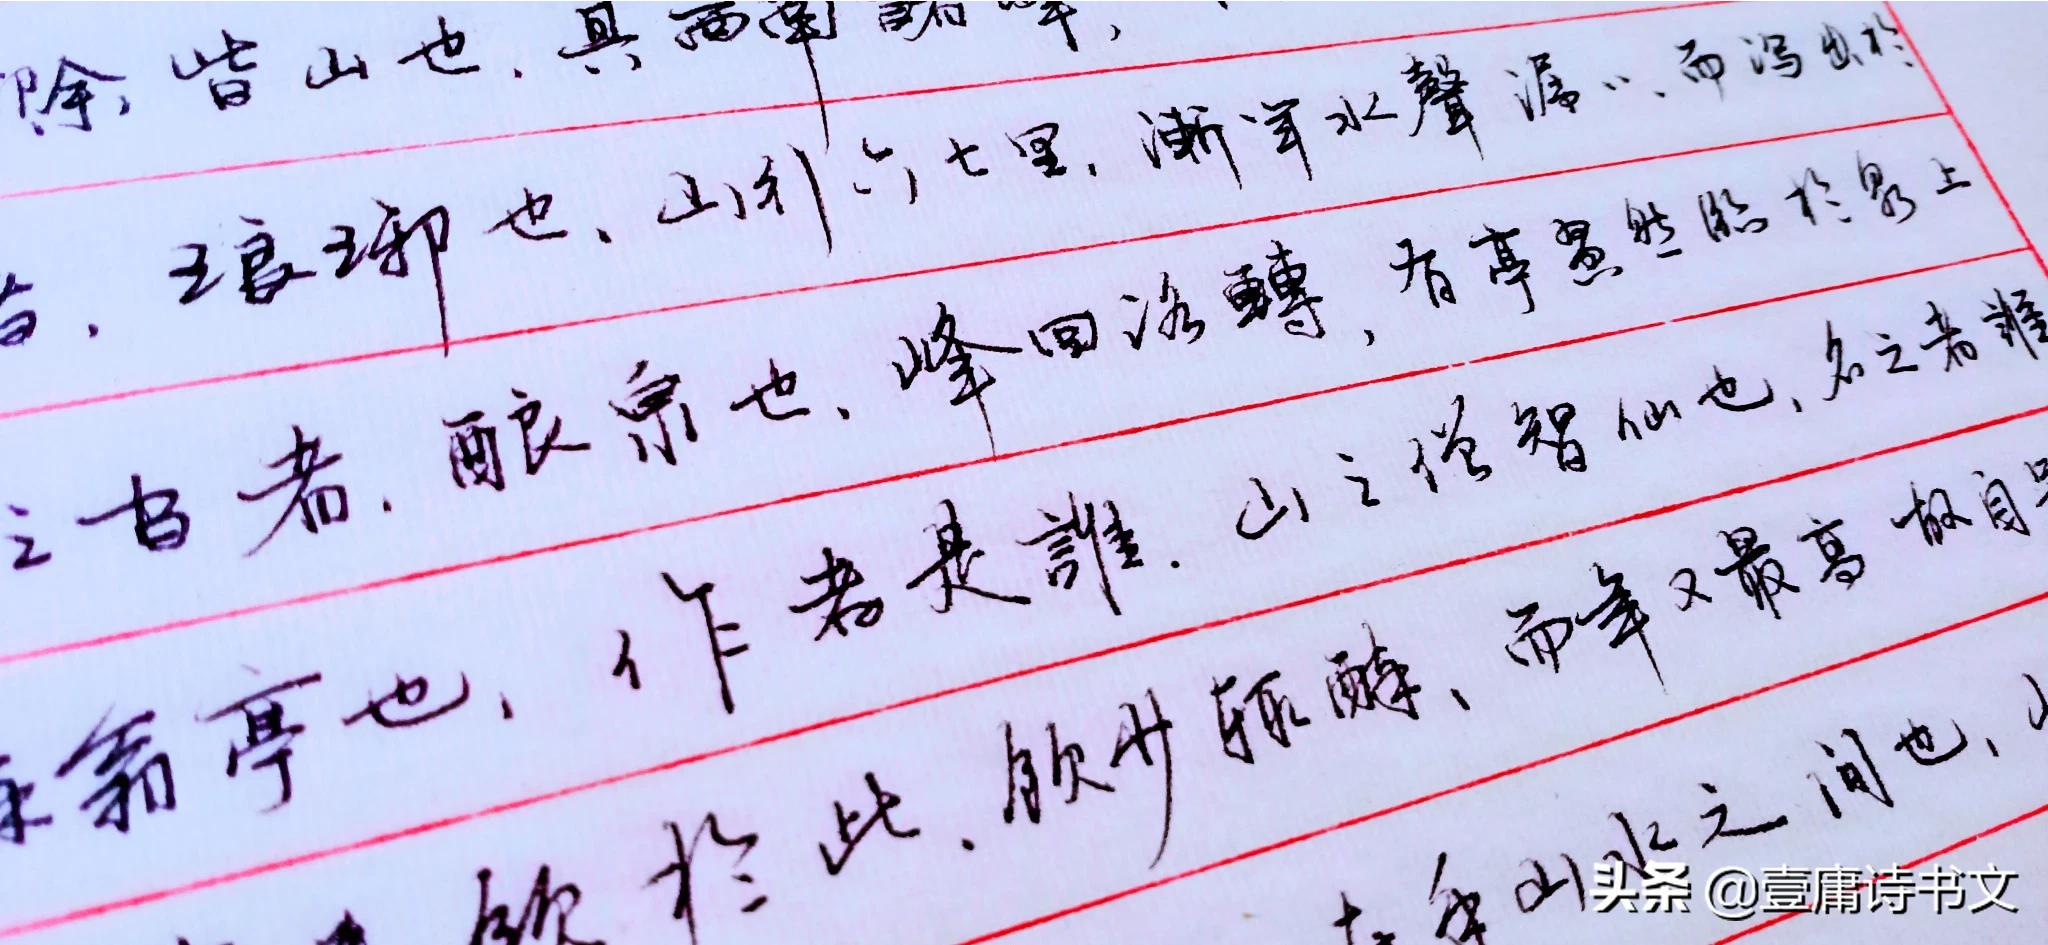 除,皆山也.其西南諸峰,
琅琊也、山行六七里,漸闻水聲潺〻、而泻出於
之間者.酿泉也、峰回路轉,有亭翼然臨於泉上
翁亭也,作者是誰.山之僧智仙也,名之者誰
飲於此.飲少輒醉、而年又最高故自号
在乎山水之间也,山
头条 @壹庸诗书文